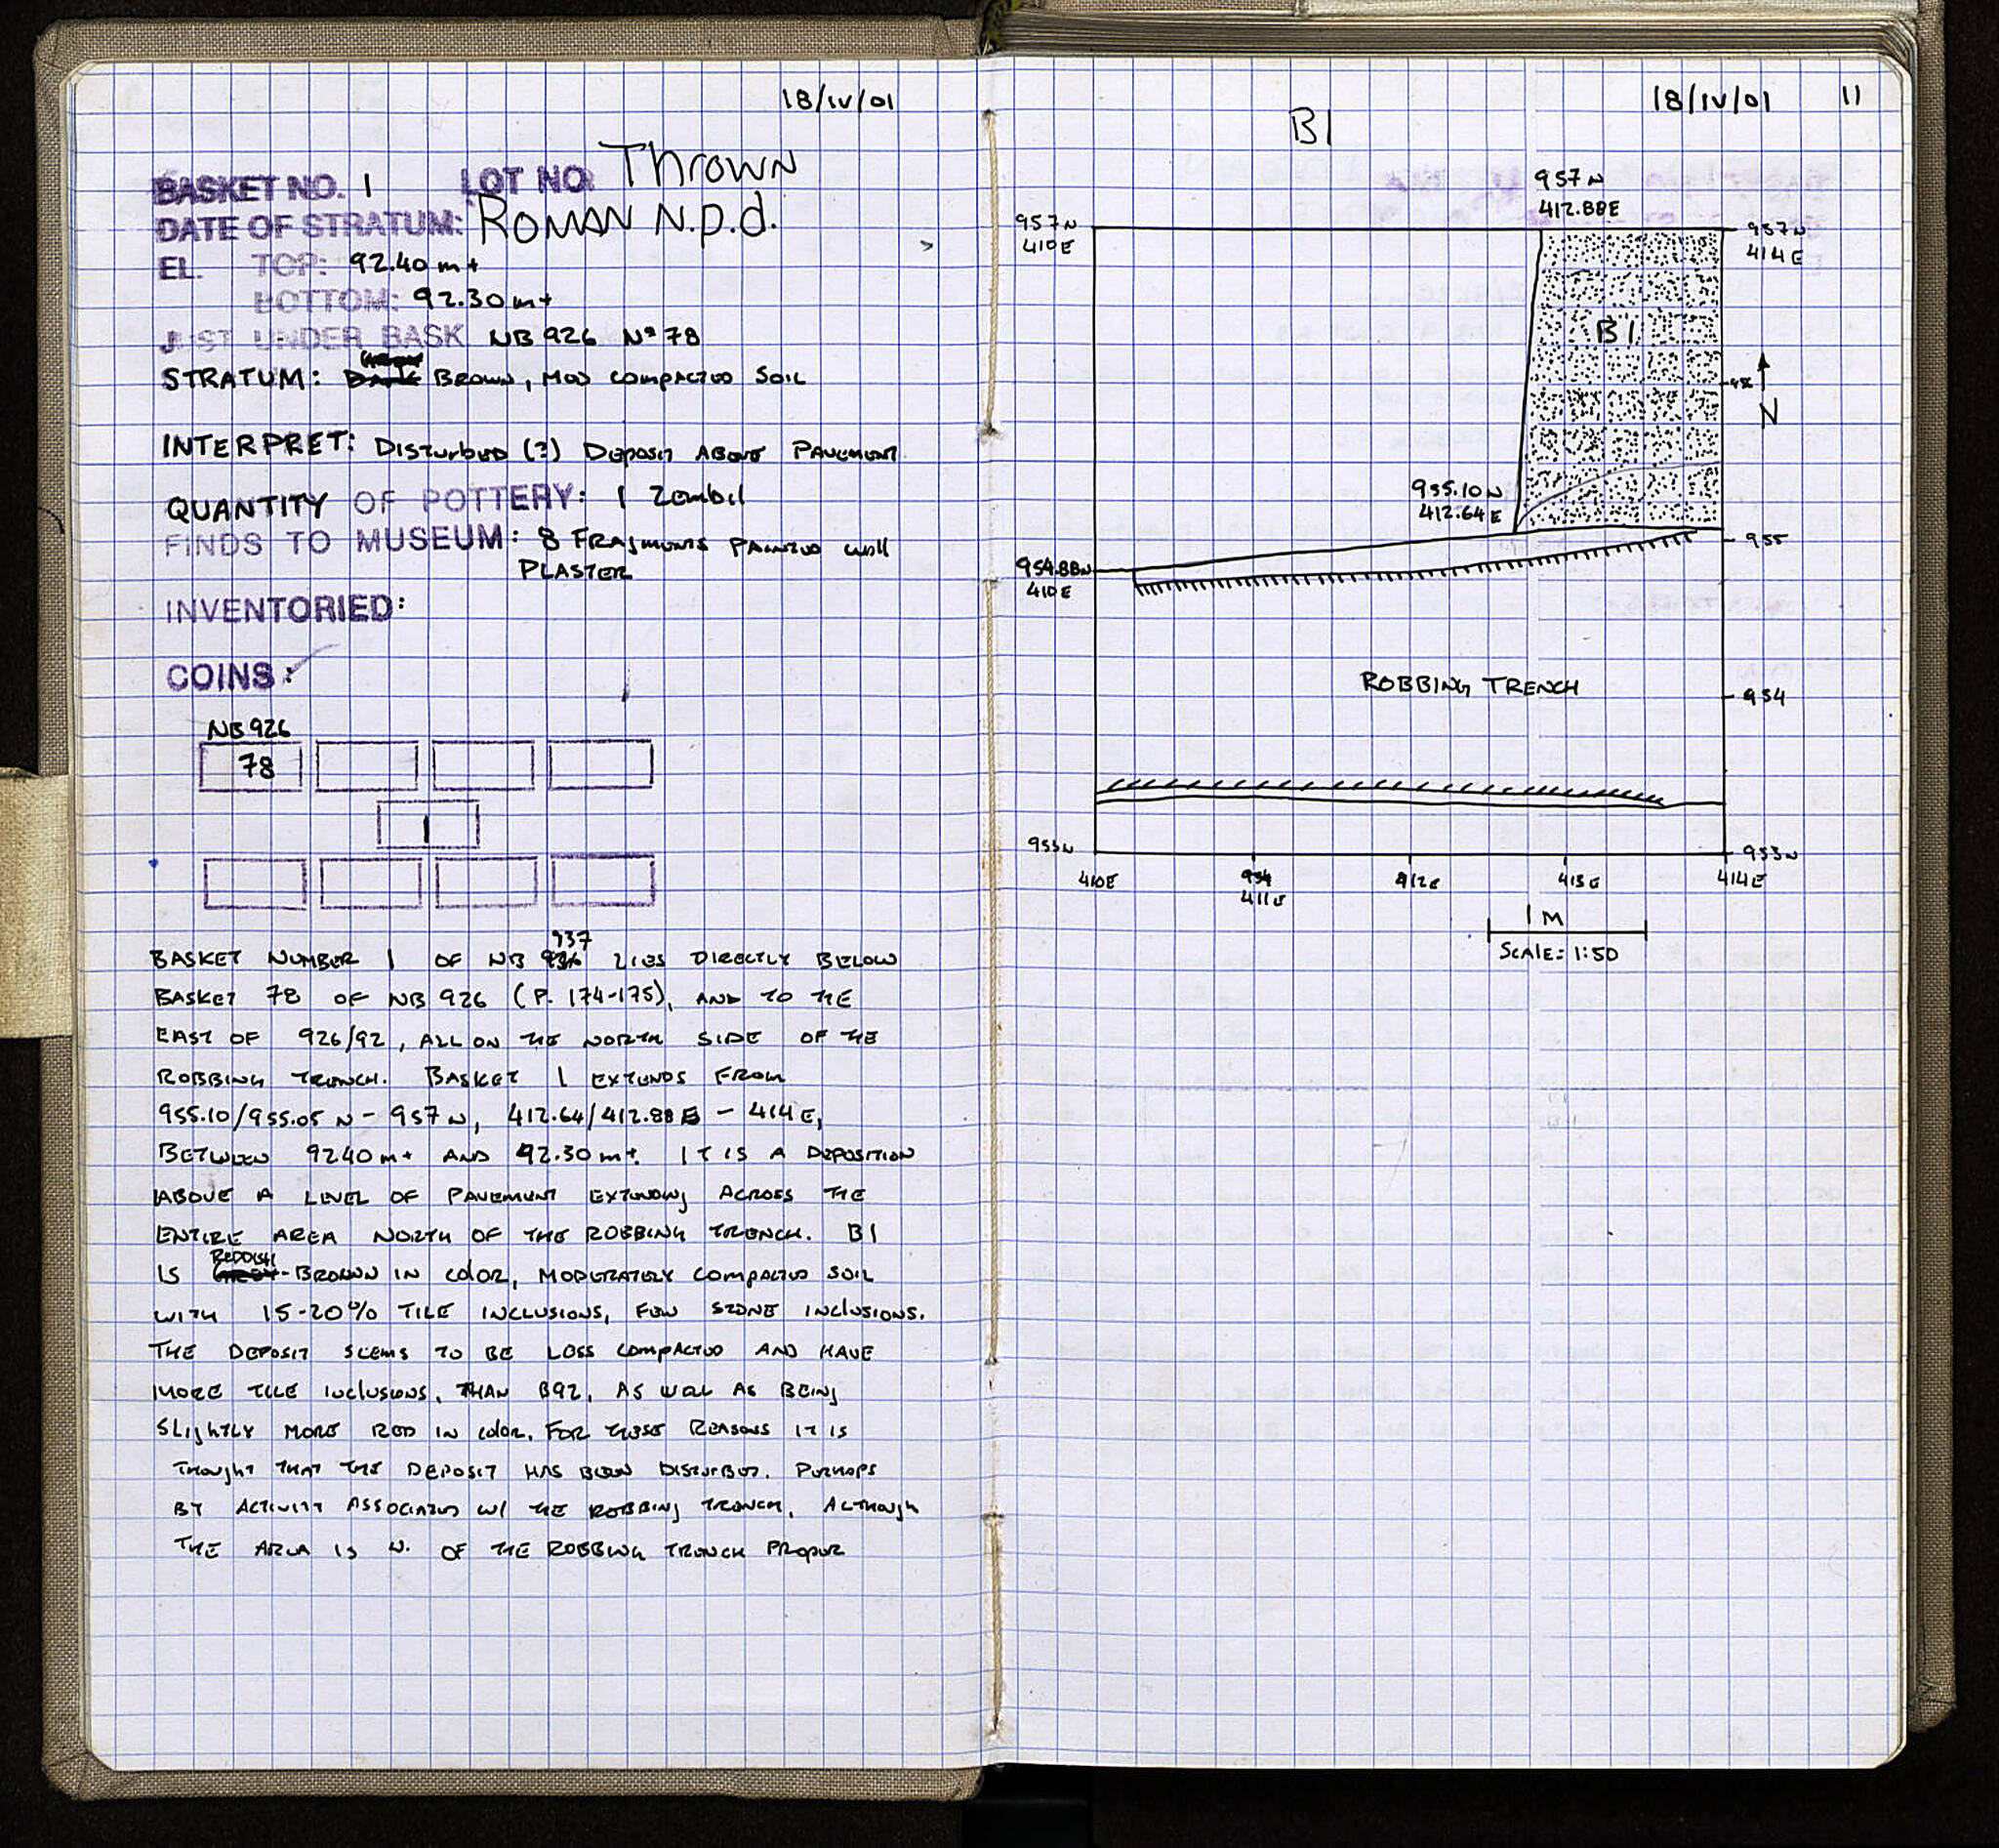 18/IV/01
BASKET NO. 1 LOT NO: Thrown
DATE OF STRATUM: ROMAN N.p.d.
EL. TOP: 92.40 m+
BOTTOM: 92.30 m+
JUST UNDER BASK NB 926 Nº 78
STRATUM: BROWN, MOD COMPACTED SOIL
INTERPRET: DISTURBED (?) DEPOSIT ABOVE PAVEMENT
QUANTITY OF POTTERY: 1 Zembil
FINDS TO MUSEUM: 8 FRAGMENTS PAINTED WALL
PLASTER
INVENTORIED:
COINS:
NB 926
78
1
937
BASKET NUMBER 1 OF NB LIES DIRECTLY BELOW
BASKET 78 OF NB 926 (P. 174-175), AND TO THE
EAST OF 926/92, ALL ON THE NORTH SIDE OF THE
ROBBING TRENCH. BASKET 1 EXTENDS FROM
955.10/955.05 N - 957 N, 412.64/412.88 E - 414 E,
BETWEEN 92.40 m+ AND 92.30 m+. IT IS A DEPOSITION
ABOVE A LEVEL OF PAVEMENT EXTENDING ACROSS THE
ENTIRE AREA NORTH OF THE ROBBING TRENCH. B1
REDDISH
IS -BROWN IN COLOR, MODERATELY COMPACTED SOIL
WITH 15-20% TILE INCLUSIONS, FEW STONE INCLUSIONS.
THE DEPOSIT SEEMS TO BE LESS COMPACTED AND HAVE
MORE TILE INCLUSIONS, THAN B92, AS WELL AS BEING
SLIGHTLY MORE RED IN COLOR. FOR THESE REASONS IT IS
THOUGHT THAT THE DEPOSIT HAS BEEN DISTURBED. PERHAPS
BY ACTIVITY ASSOCIATED W/ THE ROBBING TRENCH, ALTHOUGH
THE AREA IS N. OF THE ROBBING TRENCH PROPER
18/IV/01 11
B1
957 N
412.88E
957 N
410 E
957 N
414 E
B1
N
955.10 N
412.64 E
955
954.88N
410 E
ROBBING TRENCH
954
953N
953N
410E
954
411E
412E
413E
414E
1 M
SCALE: 1:50